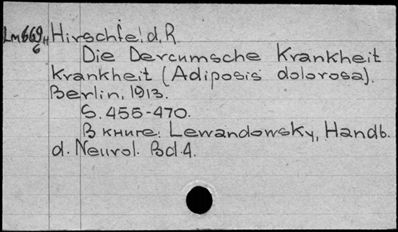 Lm669 Hirschfeld, R.
6
Die Dercumsche Krankheit
Krankheit (Adiposis dolorosa).
Berlin, 1913.
S. 455-470.
В книге: Lewandowsky, Handb.
d. Neurol. Bd 4.